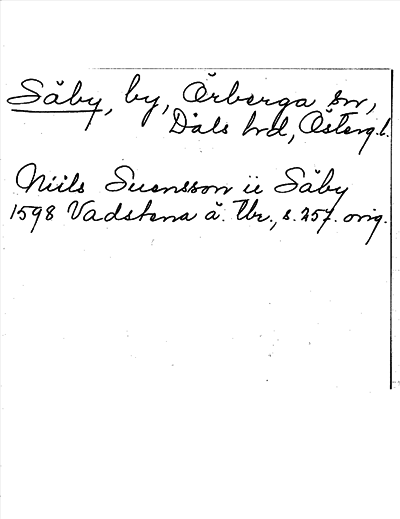 Säby, by, Örberga sn,
Dals hd, Österg.l.
Niils Suensson ii Säby
1598 Vadstena ä. Tbr., s. 257. orig.